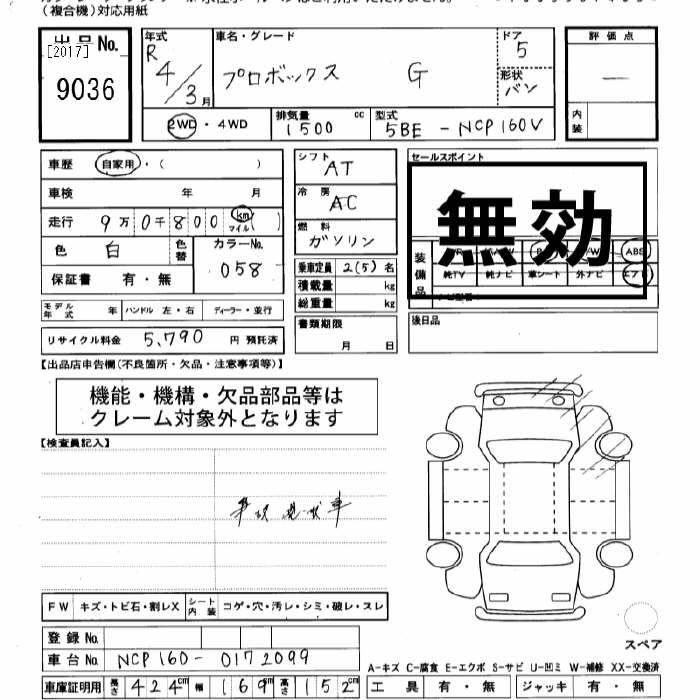 (複合機)対応用紙
出品No.
[2017]
9036
年式
R 4/3月
車名・グレード
プロボックス G
ドア
5
形状
バン
評価点
—
内装
2WD・4WD
排気量
1500 cc
型式
5BE - NCP160V
車歴 自家用・( )
車検 年 月
走行 9万0千800 km マイル ( )
色 白 色替
カラーNo.
058
保証書 有・無
モデル年式 年 ハンドル 左・右 ディーラー・並行
リサイクル料金 5,790 円 預託済
シフト
AT
冷房
AC
燃料
ガソリン
乗車定員 2(5)名
積載量 kg
総重量 kg
書類期限
月 日
セールスポイント
無効
装備品
ABS
純TV 純ナビ 革シート 外ナビ
後日品
【出品店申告欄(不良箇所・欠品・注意事項等)】
機能・機構・欠品部品等は
クレーム対象外となります
【検査員記入】
車
FW キズ・トビ石・割レX シート内装 コゲ・穴・汚レ・シミ・破レ・スレ
登録No.
車台No. NCP160-0172099
車庫証明用 長さ 424cm 幅 169cm 高さ 152cm
スペア
A-キズ C-腐食 E-エクボ S-サビ U-凹ミ W-補修 XX-交換済
工具 有・無 ジャッキ 有・無